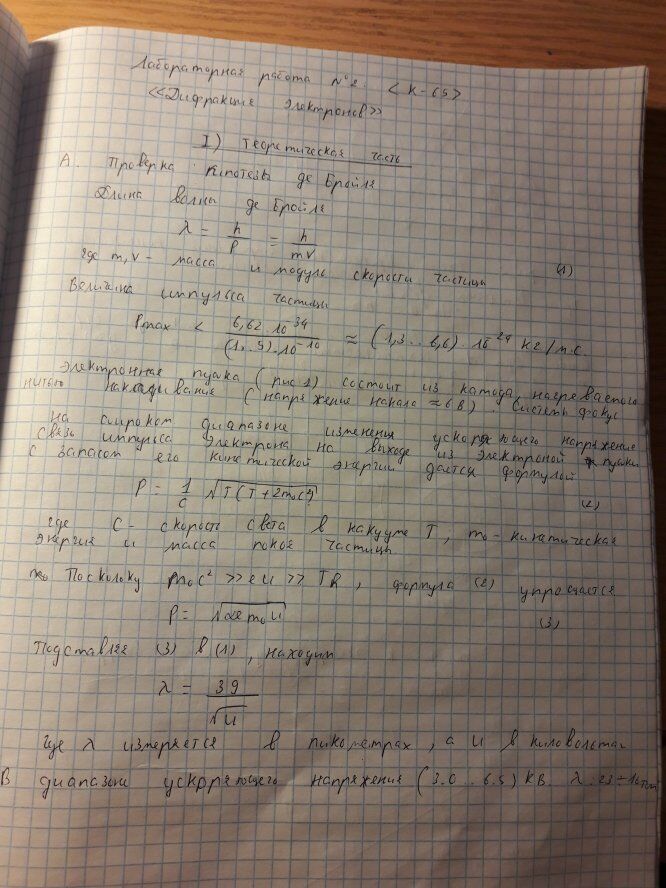 Лабораторная работа №2. <К-65>
<<Дифракция электронов>>
I) Теоретическая часть
А. Проверка гипотезы де Бройля
Длина волны де Бройля
λ = h/p = h/mV
где m, V - масса и модуль скорости частицы (1)
Величина импульса частицы
Pmax < 6,62·10⁻³⁴/(1..5)·10⁻¹⁰ ≈ (1,3..6,6)·10⁻²⁴ кг/м·с.
Электронная пушка (рис 1) состоит из катода, нагреваемого
нитью накаливания (напряжение накала ≈ 6В) систем фокус
на широком диапазоне изменения ускоряющего напряжение
связь импульса электрона на выходе из электроной пушки
с запасом его кинетической энергии дается формулой
P = 1/c √T(T+2m₀c²) (2)
где С - скорость света в вакууме T; m₀ - кинетическая
энергия и масса покоя частицы
Посколоку m₀c² >> eU >> TR, формула (2) упрощается
P = √2em₀U (3)
Подставляя (3) в (1), находим
λ = 39/√U
где λ измеряется в пикометрах, а U в киловольтах
В диапазоне ускоряющего напряжения (3.0..6.5) КВ. λ: 23÷16пм